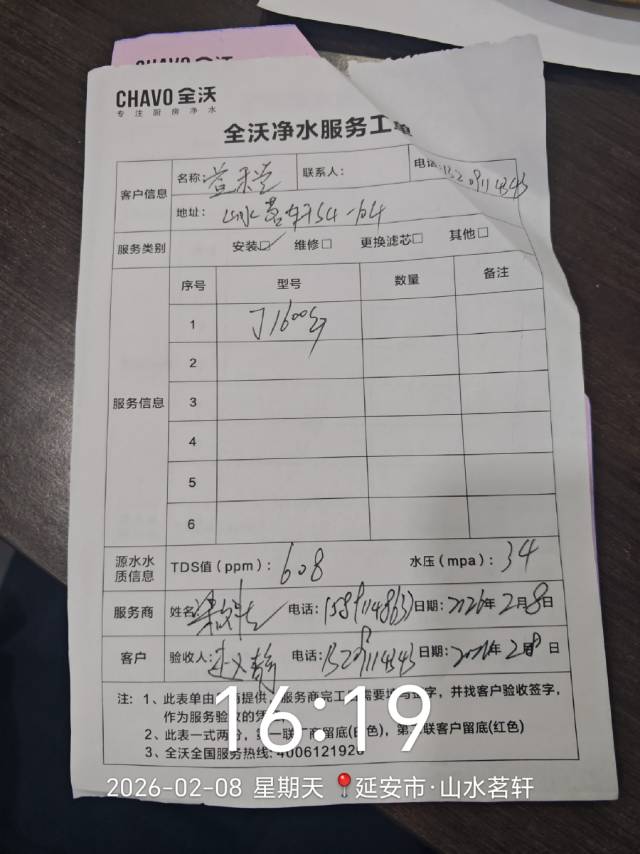 CHAVO 全沃
CHAVO 全沃
专注厨房净水
全沃净水服务工单
客户信息
名称: 联系人: 电话:
地址: 山水茗轩S4-104
服务类别 安装☑ 维修□ 更换滤芯□ 其他□
服务信息
序号 型号 数量 备注
1 J1600G
2
3
4
5
6
源水水质信息 TDS值(ppm): 608 水压(mpa): 34
服务商 姓名 电话: 15891114863 日期: 2026年2月8日
客户 验收人: 赵文静 电话: 15209114343 日期: 2026年2月8日
注: 1、此表单由 提供,服务商完工 需要填写签字,并找客户验收签字,
作为服务验收的凭
2、此表一式两份,第一联厂商留底(白色),第二联客户留底(红色)
3、全沃全国服务热线: 4006121928
16:19
2026-02-08 星期天 延安市·山水茗轩